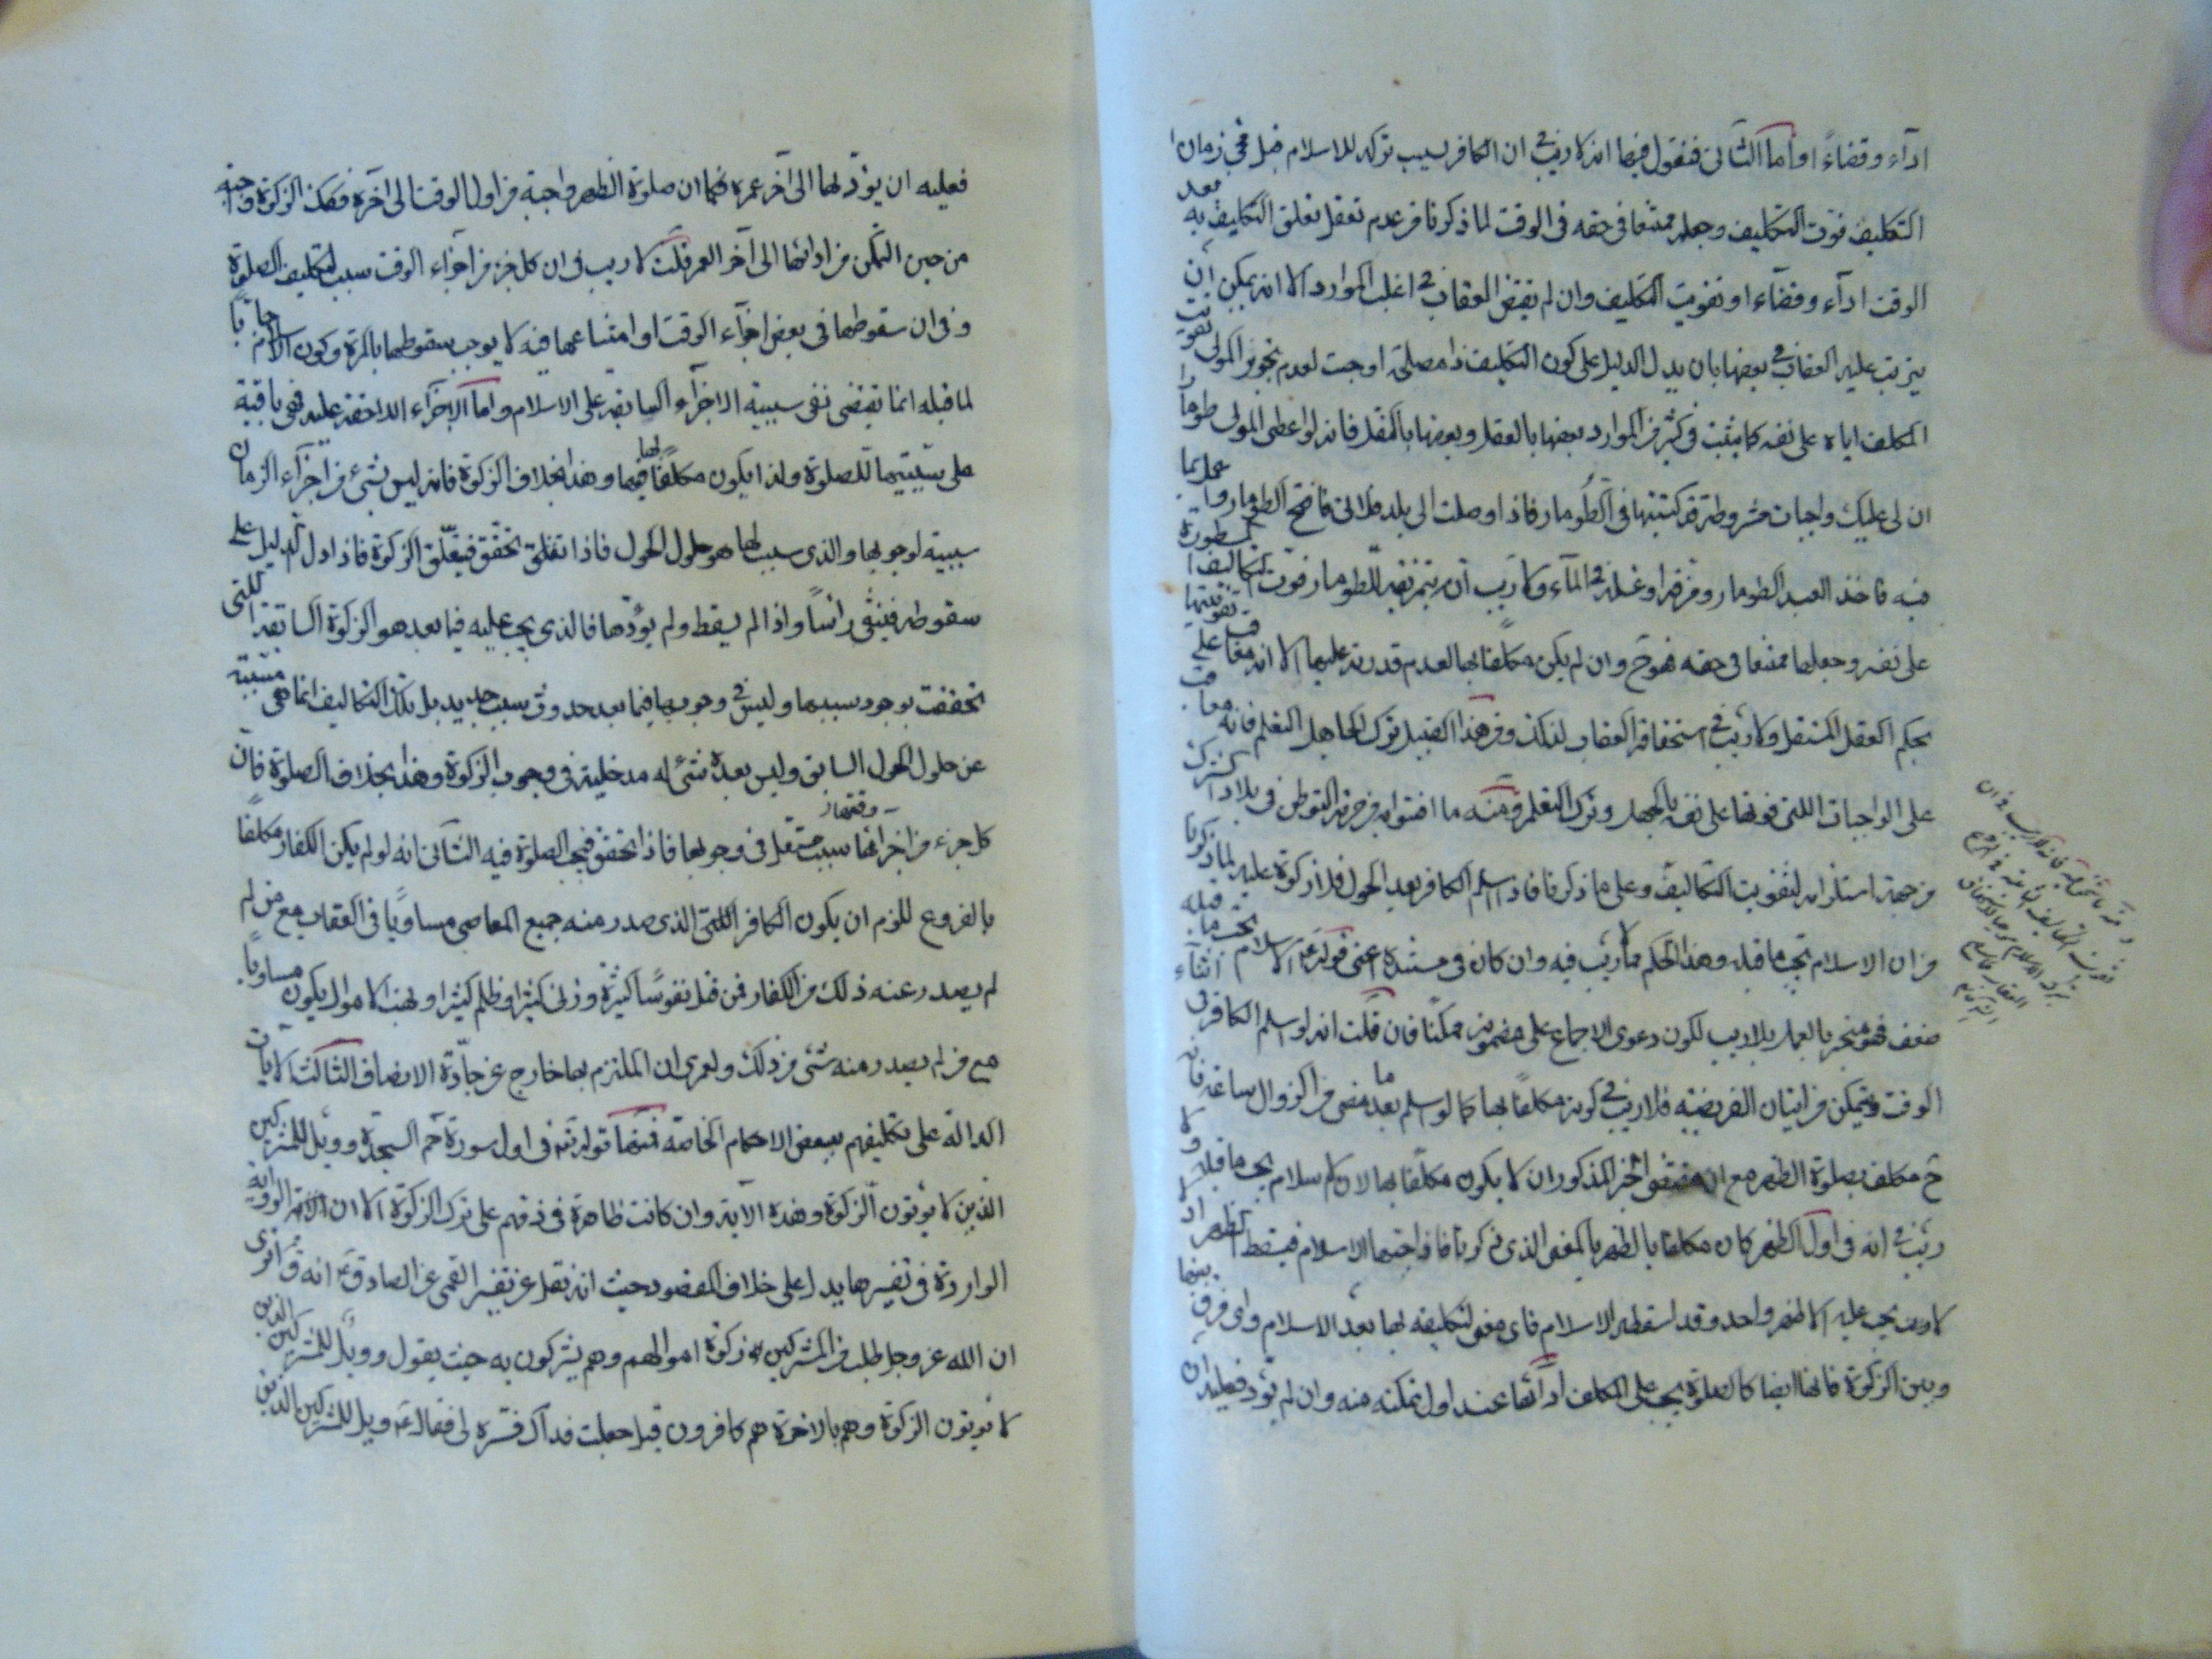 ادآء وقضاءً او أما الثانى فنقول فيها انه لا ريب فى ان الكافر بسبب تركه للاسلام قبل مجئ زمان
التكليف فوّت التكليف وجعله ممتنعا فى حقه فى الوقت لما ذكرنا من عدم تعقل تعلق التكليف به بعد
الوقت ادآء وقضآء او تفويت التكليف وان لم يقتض العقاب فى اغلب الموارد الا انه يمكن ان
يترتب عليه العقاب فى بعضها بان يدل الدليل على كون التكليف ذا مصلحة اوجبت لعدم تجويز المولى تفويت
المكلف اياه على نفسه كما يثبت فى كثير من الموارد بعضها بالعقل وبعضها بالنقل فانه لو اعطى المولى طومارا
ان لى عليك واجبات مشروطة قد كتبتها فى الطومار فاذا وصلت الى بلد فلانى فافتح الطومار واعمل بما
فيه فاخذ العبد الطومار ومزقه او غسله فى المآء ولا ريب ان بتمزيقه للطومار فوّت التكاليف المسطورة
على نفسه وجعلها ممتنعا فى حقه فهو ح وان لم يكن مكلفا بها لعدم قدرته عليها الا انه معاقب على تفويتها
بحكم العقل المستقل ولا ريب فى استحقاقه العقاب لذلك ومن هذا القبيل ترك الجاهل التعلم فانه معاقب
على الواجبات اللتى فوتها على نفسه بالجهل وترك التعلم ومنه ما افتوا به من حرمة التوطن فى بلاد الشرك
من جهة استلزامه لتفويت التكاليف وعلى ما ذكرنا فاذا اسلم الكافر بعد الحول فلا زكوة عليه لما ذكرنا
من ان الاسلام يجب ما قبله وهذا الحكم مما لا ريب فيه وان كان فى مستنده اعنى قوله ع الاسلام يجب ما قبله
ضعف فهو منجبر بالعمل بلا ريب لكون دعوى الاجماع على مضمونه ممكنا فان قلت انه لو اسلم الكافر فى اثناء
الوقت وتمكن من اتيان الفريضة فلا ريب فى كونه مكلفا بها كما لو اسلم بعد ما مضى من الزوال ساعة فانه
ح مكلف بصلوة الظهر مع ان مقتضى الخبر المذكور ان لا يكون مكلفا بها لان الاسلام يجب ما قبله ولا
ريب فى انه فى اول الظهر كان مكلفا بالظهر بالمعنى الذى ذكرنا فاذا جبها الاسلام فيسقط الظهر اذ
لا يجب عليه الا ظهر واحد وقد اسقطه الاسلام فاى معنى لتكليفه بها بعد الاسلام واى فرق بينها
وبين الزكوة فانها ايضا كالصلوة يجب على المكلف ادائها عند اول تمكنه منه وان لم يؤد فعليه ان
فعليه ان يؤدّيها الى آخر عمره فكما ان صلوة الظهر واجبة من اول الوقت الى آخره فكذا الزكوة واجبة
من حين التمكن من ادائها الى آخر العمر قلت لا ريب فى ان كل جزء من اجزآء الوقت سبب لتكليف الصلوة
وفى ان سقوطها فى بعض اجزآء الوقت او امتناعها فيه لا يوجب سقوطها بالمرة وكون الاسلام جابّا
لما قبله انما يقتضى نفى سببية الاجزآء السابقة على الاسلام واما الاجزآء اللاحقة عليه فهى باقية
على سببيتها للصلوة ولذا يكون مكلفا بها فيها وهذا بخلاف الزكوة فانه ليس شئ من اجزآء الزمان
سببية لوجوبها والذى سبب لها هو حلول الحول فاذا تحقق فيتعلّق الزكوة فاذا دل الدليل على
سقوطه فينتفى رأسا واذا لم يسقط ولم يؤدّها فالذى يجب عليه فيما بعد هو الزكوة السابقة اللتى
تحققت بوجود سببها وليس فى وجوبها فيما بعد حدوث سبب جديد بل تلك التكاليف انما هى مسببة
عن حلول الحول السابق وليس بعده شئ له مدخلية فى وجوب الزكوة وهذا بخلاف الصلوة فان
كل جزء من اجزاء وقتها سبب مستقل فى وجوبها فاذا تحقق فيجب الصلوة فيه الثانى انه لو لم يكن الكفار مكلفا
بالفروع للزم ان يكون الكافر اللتى الذى صدر منه جميع المعاصى مساويًا فى العقاب مع من لم
لم يصدر عنه ذلك من الكفار فمن قتل نفوسًا كثيرة وزنى كثيرا وظلم كثيرا ونهب الاموال يكون مساويا
مع من لم يصدر منه شئ من ذلك ولعمرى ان الملتزم بها خارج عن جادّة الانصاف الثالث الايات
الدالة على تكليفهم ببعض الاحكام الخاصة فمنها قوله تع فى اول سورة حم السجدة وويل للمشركين
الذين لا يؤتون الزكوة وهذه الآية وان كانت ظاهرة فى ذمهم على ترك الزكوة الا ان الرواية
الواردة فى تفسيرها يدل على خلاف المقصود حيث انه نقل عن تفسير القمى عن الصادق ع انه ق اترى
ان الله عز وجل طلب من المشركين زكوة اموالهم وهم يشركون به حيث يقول وويل للمشركين الذين
لا يؤتون الزكوة وهم بالاخرة هم كافرون قيل جعلت فداك فسّره لى فقال ع ويل للمشركين الذين